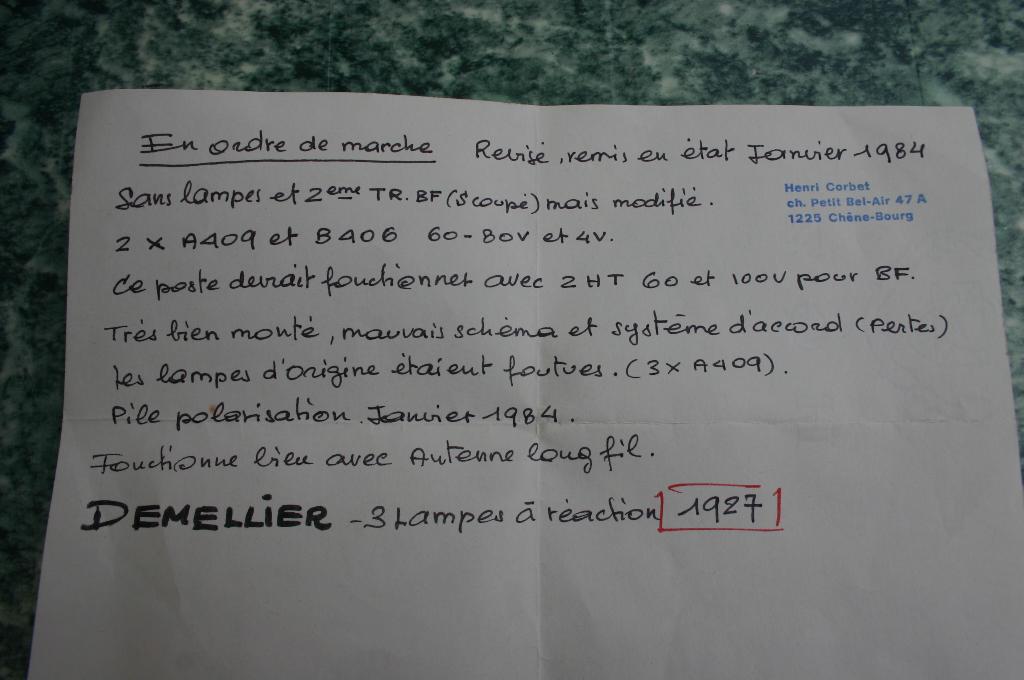 En ordre de marche Revisé, remis en état Janvier 1984
Henri Corbet
ch. Petit Bel-Air 47 A
1225 Chêne-Bourg
Sans lampes et 2eme TR. BF (S coupé) mais modifié.
2 x A409 et B406 60-80V et 4V.
Ce poste devrait fonctionner avec 2 HT 60 et 100V pour BF.
Très bien monté, mauvais schèma et système d'accord (Pertes)
Les lampes d'origine étaient foutues. (3x A409).
Pile polarisation. Janvier 1984.
Fonctionne bien avec Antenne long fil.
DEMELLIER - 3 Lampes à réaction 1927